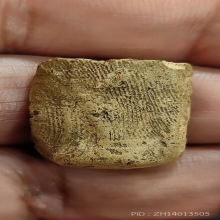 PID : ZH14013505